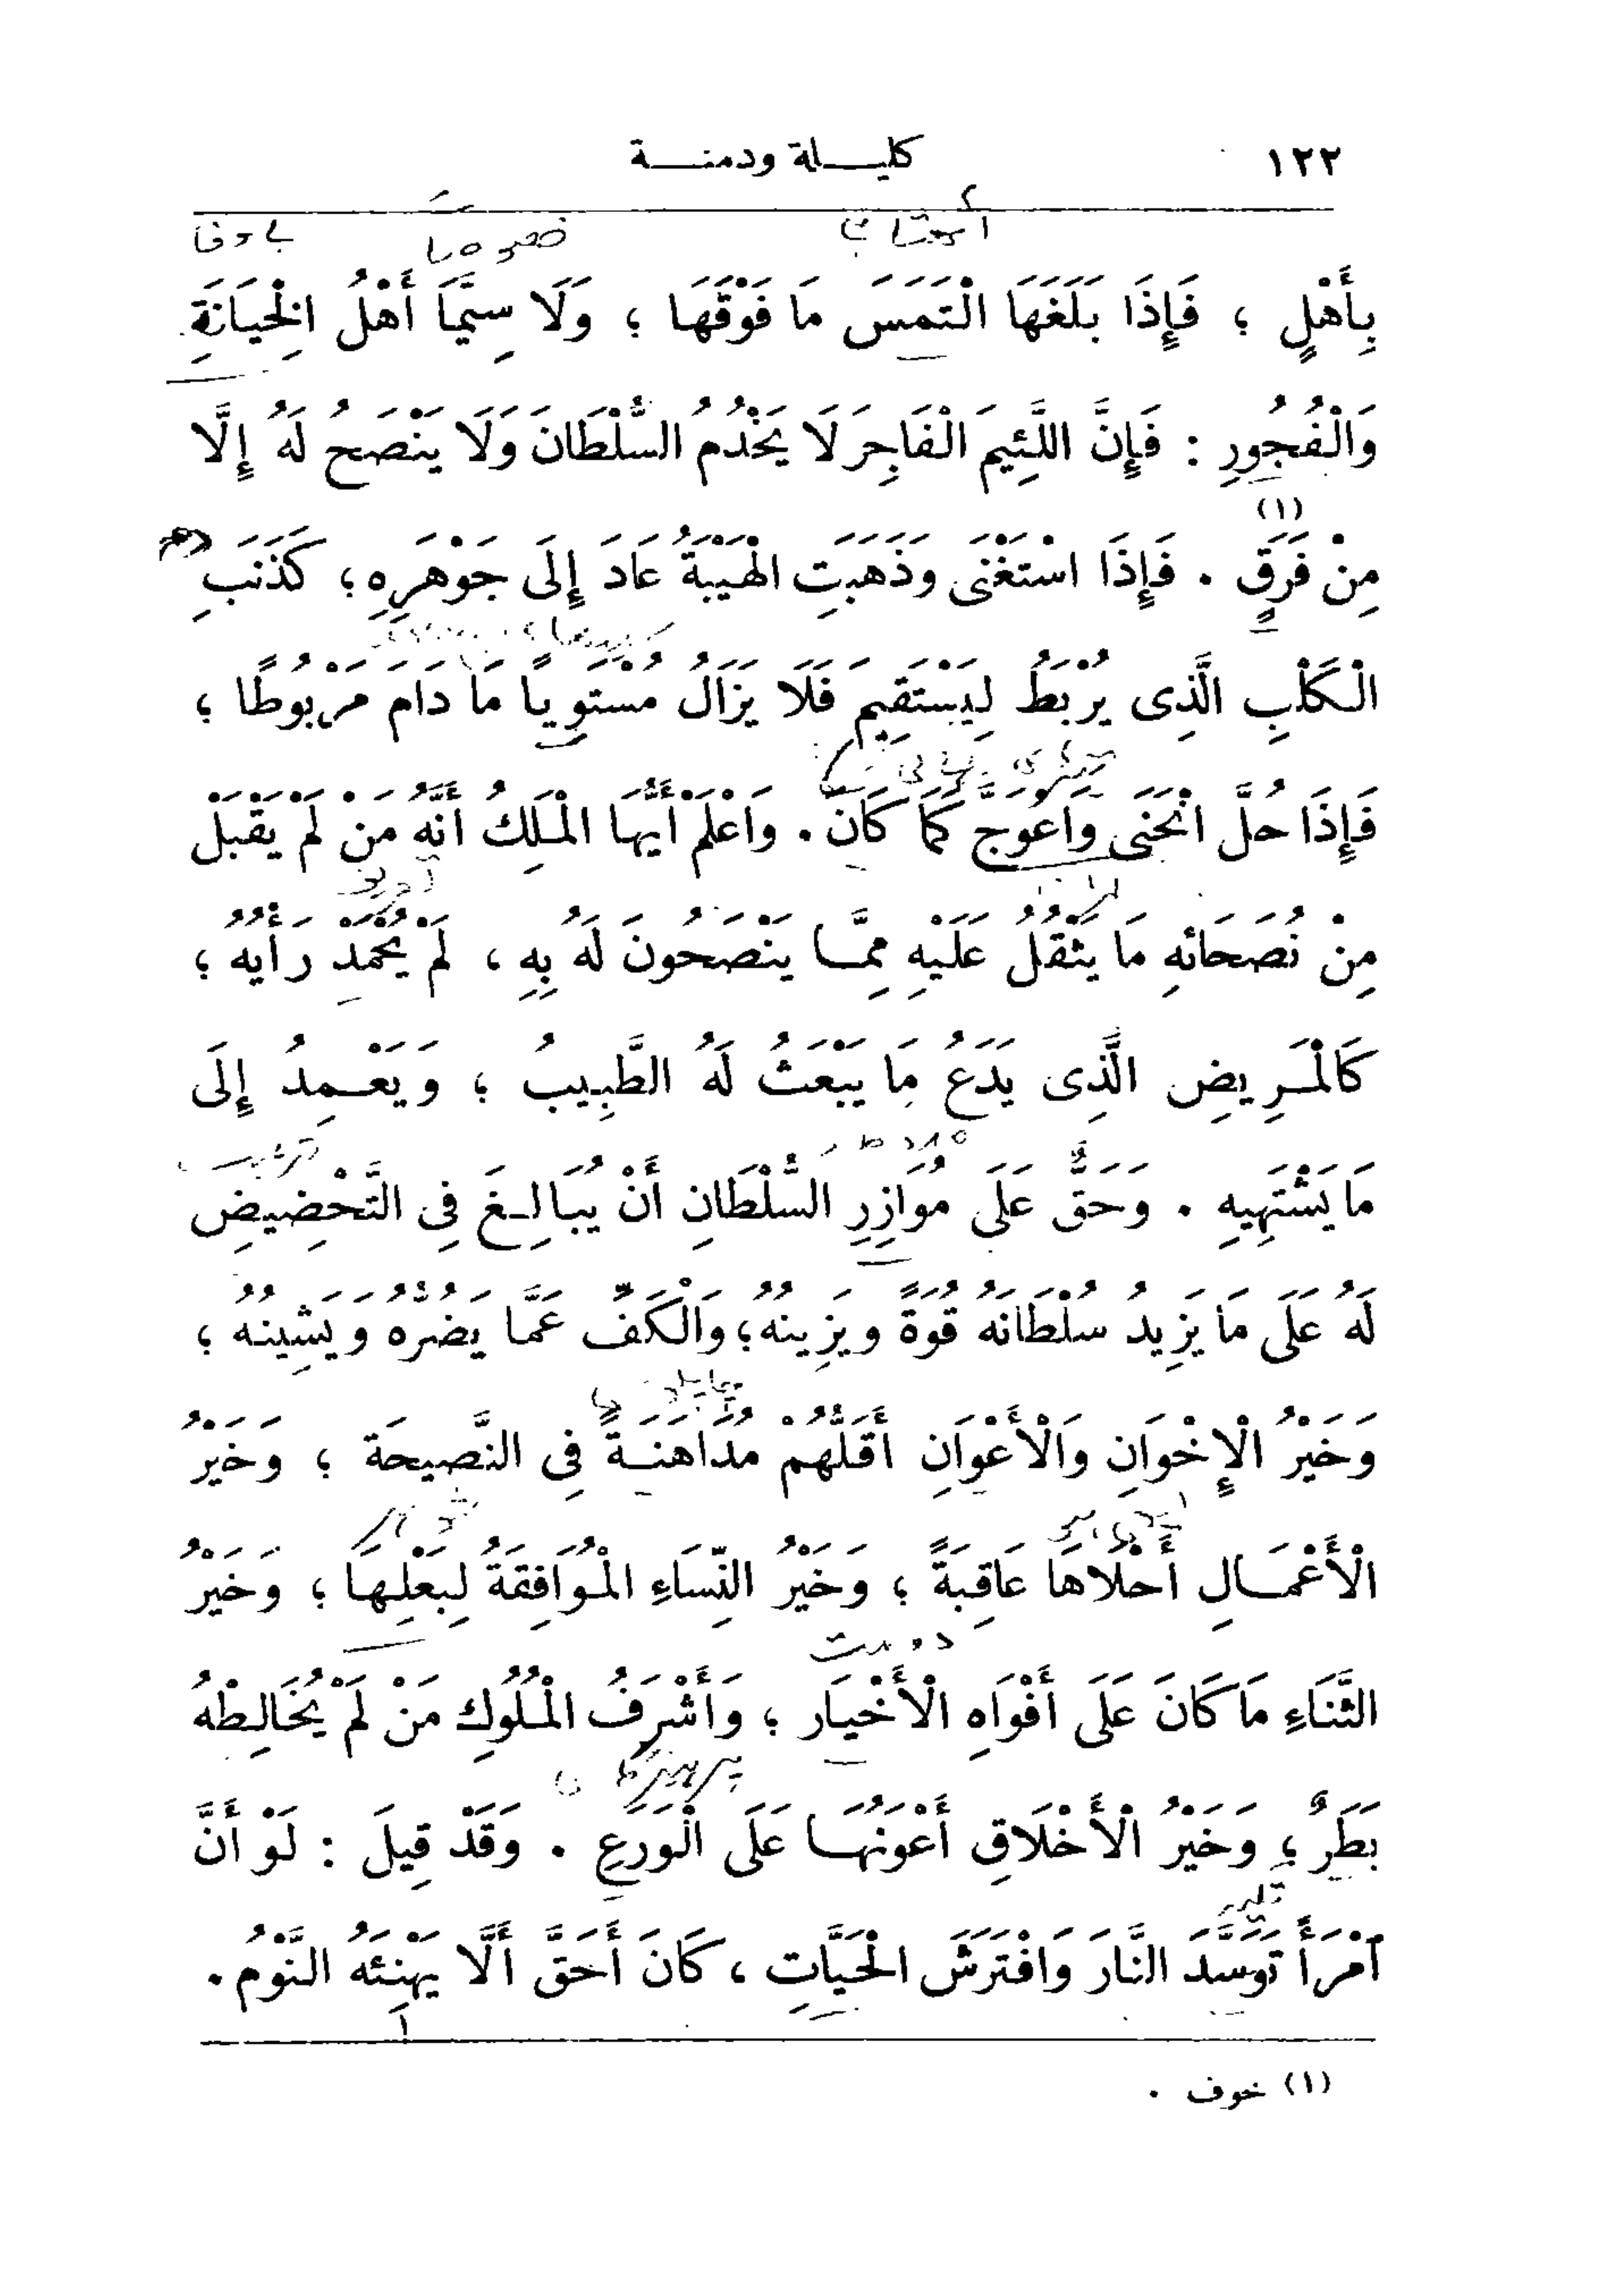 ١٢٢ كليلة ودمنة
خصوصا
بِأَهْلٍ ؛ فَإِذَا بَلَغَهَا الْتَمَسَ مَا فَوْقَهَا ؛ وَلَا سِيَّمَا أَهْلُ الْخِيَانَةِ
وَالْفُجُورِ : فَإِنَّ اللَّئِيمَ الْفَاجِرَ لَا يَخْدُمُ السُّلْطَانَ وَلَا يَنْصَحُ لَهُ إِلَّا
مِنْ فَرَقٍ (١) . فَإِذَا اسْتَغْنَى وَذَهَبَتِ الْهَيْبَةُ عَادَ إِلَى جَوْهَرِهِ ؛ كَذَنَبِ
الْكَلْبِ الَّذِى يُرْبَطُ لِيَسْتَقِيمَ فَلَا يَزَالُ مُسْتَوِيًا مَا دَامَ مَرْبُوطًا ؛
فَإِذَا حُلَّ انْحَنَى وَاعْوَجَّ كَمَا كَانَ . وَاعْلَمْ أَيُّهَا الْمَلِكُ أَنَّهُ مَنْ لَمْ يَقْبَلْ
مِنْ نُصَحَائِهِ مَا يَثْقُلُ عَلَيْهِ مِمَّا يَنْصَحُونَ لَهُ بِهِ ، لَمْ يُحْمَدْ رَأْيُهُ ؛
كَالْمَرِيضِ الَّذِى يَدَعُ مَا يَبْعَثُ لَهُ الطَّبِيبُ ؛ وَيَعْمِدُ إِلَى
مَا يَشْتَهِيهِ . وَحَقٌّ عَلَى مُوَازِرِ السُّلْطَانِ أَنْ يُبَالِغَ فِى التَّحْضِيضِ
لَهُ عَلَى مَا يَزِيدُ سُلْطَانَهُ قُوَّةً وَيَزِينُهُ ؛ وَالْكَفِّ عَمَّا يَضُرُّهُ وَيَشِينُهُ ؛
وَخَيْرُ الْإِخْوَانِ وَالْأَعْوَانِ أَقَلُّهُمْ مُدَاهَنَةً فِى النَّصِيحَةِ ؛ وَخَيْرُ
الْأَعْمَالِ أَحْلَاهَا عَاقِبَةً ؛ وَخَيْرُ النِّسَاءِ الْمُوَافِقَةُ لِبَعْلِهَا ؛ وَخَيْرُ
دوست
الثَّنَاءِ مَا كَانَ عَلَى أَفْوَاهِ الْأَخْيَارِ ؛ وَأَشْرَفُ الْمُلُوكِ مَنْ لَمْ يُخَالِطْهُ
بَطَرٌ ؛ وَخَيْرُ الْأَخْلَاقِ أَعْوَنُهَا عَلَى الْوَرَعِ . وَقَدْ قِيلَ : لَوْ أَنَّ
آمْرَأً تَوَسَّدَ النَّارَ وَافْتَرَشَ الْحَيَّاتِ ، كَانَ أَحَقَّ أَلَّا يَهْنِئَهُ النَّوْمُ .
(١) خوف .